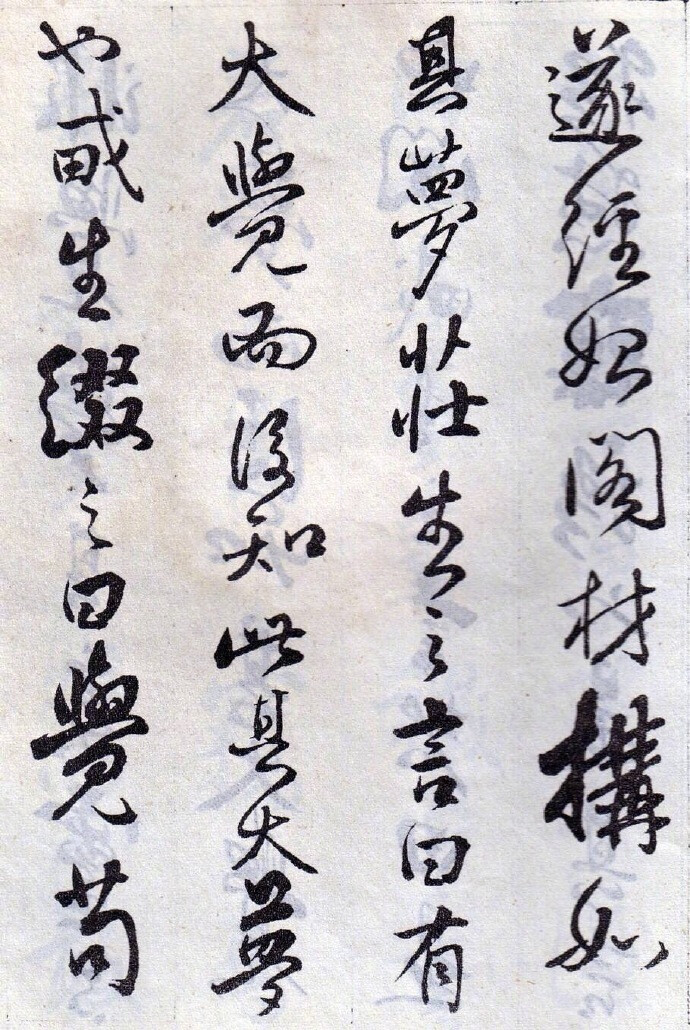 遂經始閣材搆如
其夢莊生之言曰有
大覺而後知此其大夢
也生綴之曰覺苟